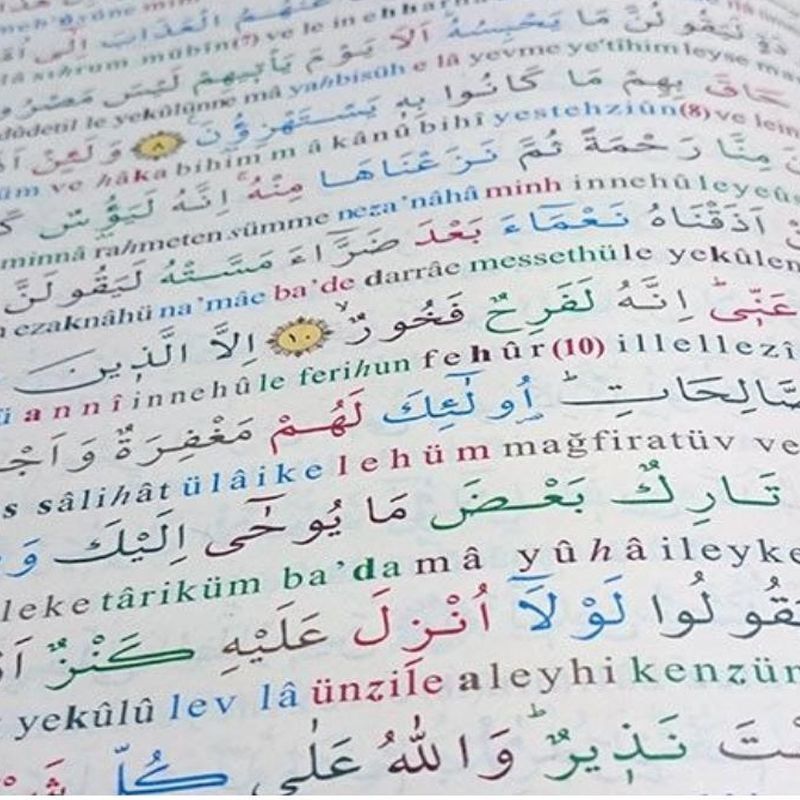 عَنْهُمُ الْعَذَابَ اِلٰٓى
لَيَقُولُنَّ مَا يَحْبِسُهُ اَلَا يَوْمَ يَأْتِيهِمْ لَيْسَ مَصْرُ
sıhrum mübîn(7) ve le in ehhar
dûdetil le yekûlünne mâ yahbisüh e lâ yevme ye'tîhim leyse ma
حَاقَ بِهِمْ مَا كَانُوا بِهِ يَسْتَهْزِؤُنَ ٨ وَلَئِنْ
üm ve hâka bihim m â kânû bihî yestehziûn(8) ve lein
مِنَّا رَحْمَةً ثُمَّ نَزَعْنَاهَا مِنْهُ اِنَّهُ لَيَؤُسٌ
minnâ rahmeten sümme neza'nâhâ minh innehû leyeûs
اَذَقْنَاهُ نَعْمَاءَ بَعْدَ ضَرَّاءَ مَسَّتْهُ لَيَقُولَنَّ
ezaknâhü na'mâe ba'de darrâe messethü le yekûlen
عَنّٖى اِنَّهُ لَفَرِحٌ فَخُورٌ ١٠ اِلَّا الَّذٖينَ
annî innehû le ferihun fehûr(10) illellezî
صَّالِحَاتِ اُولٰٓئِكَ لَهُمْ مَغْفِرَةٌ وَاَجْ
s sâlihât ülâike lehüm mağfiratüv ve
تَارِكٌ بَعْضَ مَا يُوحٰٓى اِلَيْكَ وَ
leke târiküm ba'da mâ yûhâ ileyke
يَقُولُوا لَوْلَٓا اُنْزِلَ عَلَيْهِ كَنْزٌ اَ
yekûlû lev lâ ünzile aleyhi kenzün
تَ نَذٖيرٌ وَاللّٰهُ عَلٰى كُلِّ شَ